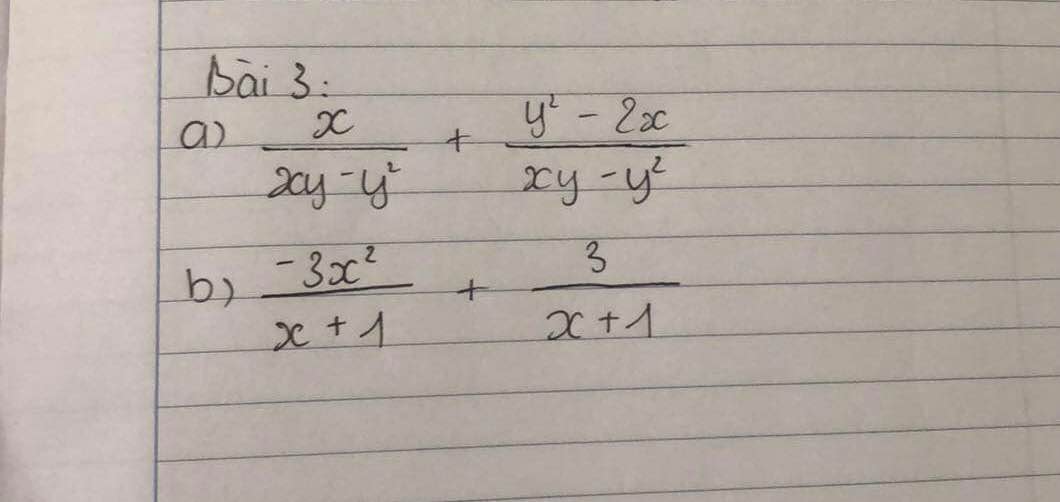 Bài 3:
a) x/(xy-y²) + (y² - 2x)/(xy - y²)
b) -3x²/(x + 1) + 3/(x + 1)